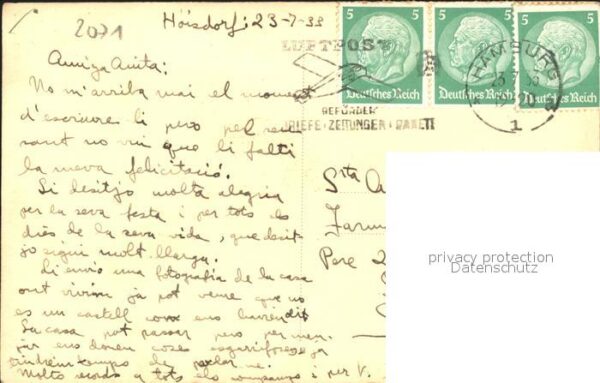 2071
Hoisdorf, 23-7-38
Amiga Anita:
No m'arriba mai el moment
d'escriure li pero pel seu
sant no vui que li falti
la meva felicitació.
Li desitjo molta alegria
per la seva festa i per tots els
dies de la seva vida, que desit
jo sigui molt llarga.
Li envio una fotografia de la casa
ont vivim ja pot veure que no
es un castell
La casa pot passar pero per
ens donen coses
tindrem temps de parlar ne.
Molts records a tots els companys i per V.
LUFTPOST
BEFÖRDERT
BRIEFE·ZEITUNGEN·PAKETE
5 5
Deutsches Reich
5 5
Deutsches Reich
5 5
Deutsches Reich
HAMBURG
1
Sta
Pere
privacy protection
Datenschutz